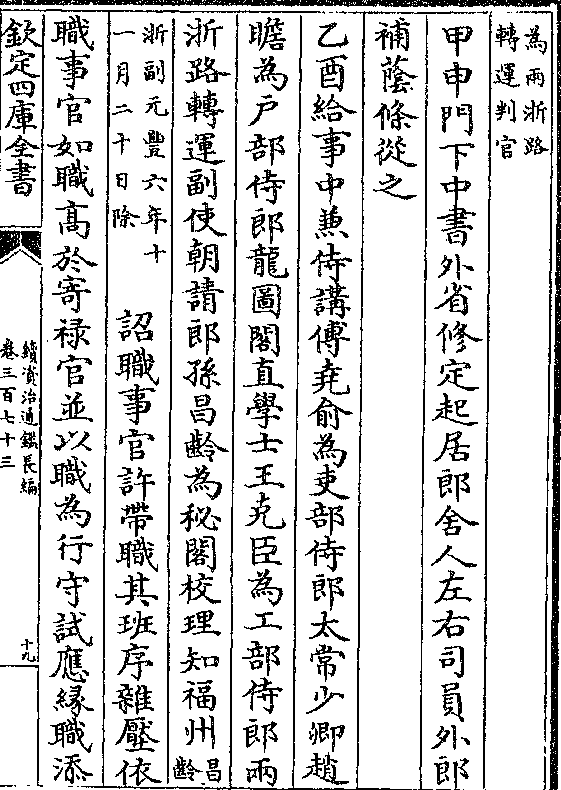 為兩浙路
轉運判官
甲申門下中書外省修定起居郎舍人左右司員外郎
補蔭條從之
乙酉給事中兼侍講傅堯俞為吏部侍郎太常少卿趙
瞻為戶部侍郎龍圖閣直學士王克臣為工部侍郎兩
浙路轉運副使朝請郎孫昌齡為秘閣校理知福州昌
齡
浙副元豐六年十
一月二十日除
詔職事官許帶職其班序雜壓依
職事官如職髙於寄禄官並以職為行守試應緣職添
欽定四庫全書
續資治通鑑長編
卷三百七十三
十九